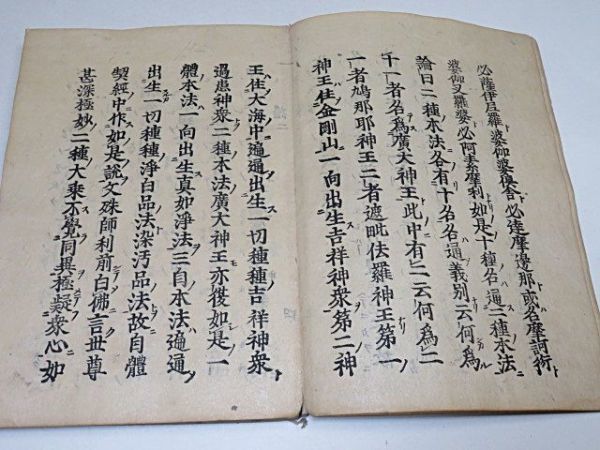 必薩伊尸羅 婆伽婆復舍 必達摩邊那 或名摩訶衍
婆伽叉羅婆 必阿素摩利 如是十種名通三種本法
論曰二種本法各有十名名通義別云何為
十一者名為廣大神王此中有二云何為二
一者鳩那耶神王二者遮毗佉羅神王第一
神王住金剛山一向出生吉祥神衆第二神
王住大海中遍通出生一切種種吉祥神衆
過患神衆二種本法廣大神王亦復如是一
體本法一向出生真如淨法三自本法遍通
出生一切種種淨白品法染汚品法故自體
契經中作如是說文殊師利前白佛言世尊
甚深極妙二種大乘不覺同異極疑衆心如